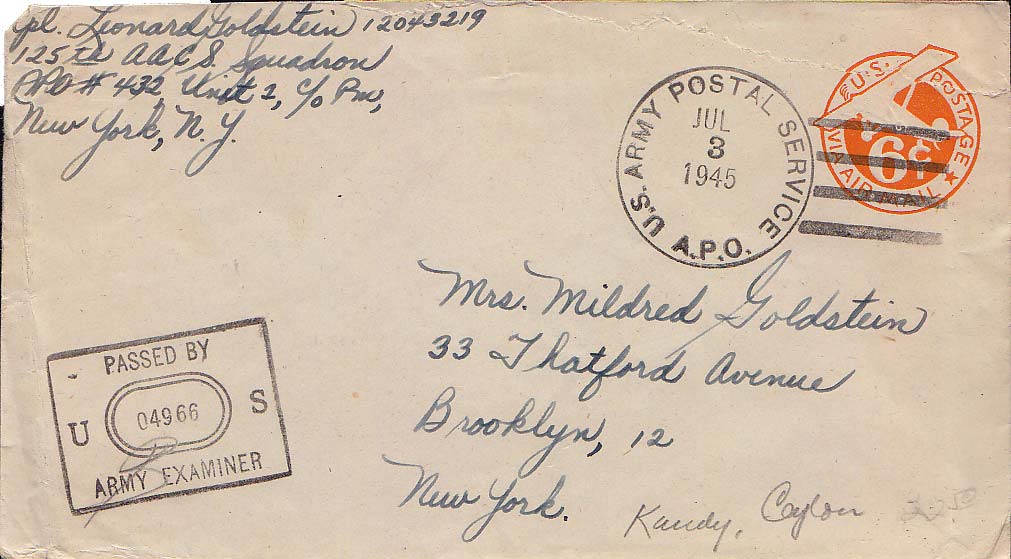 Cpl. Leonard Goldstein 12043219
125th AACS. Squadron
APO # 432, Unit 2, c/o Pm,
New York, N. Y.
U.S. ARMY POSTAL SERVICE
JUL
3
1945
A.P.O.
U.S. POSTAGE
6¢
VIA AIR MAIL
Mrs. Mildred Goldstein
33 Thatford Avenue
Brooklyn, 12
New York.
PASSED BY
U 04966 S
ARMY EXAMINER
Kandy, Ceylon